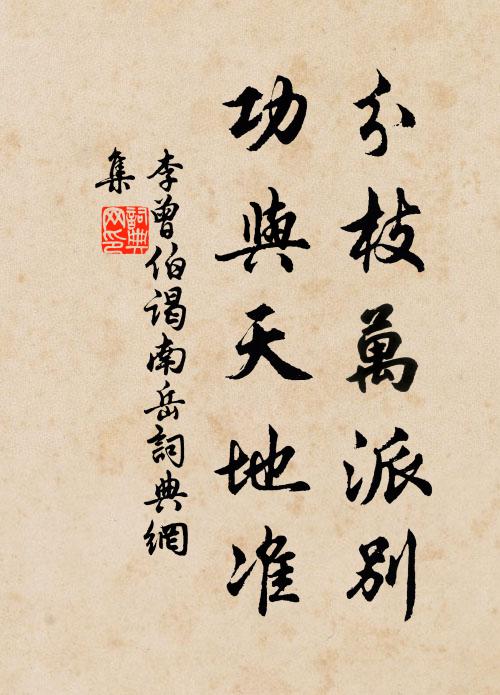 分枝萬派別
功與天地准
李曾伯謁南岳詞典網
集
詞典网印